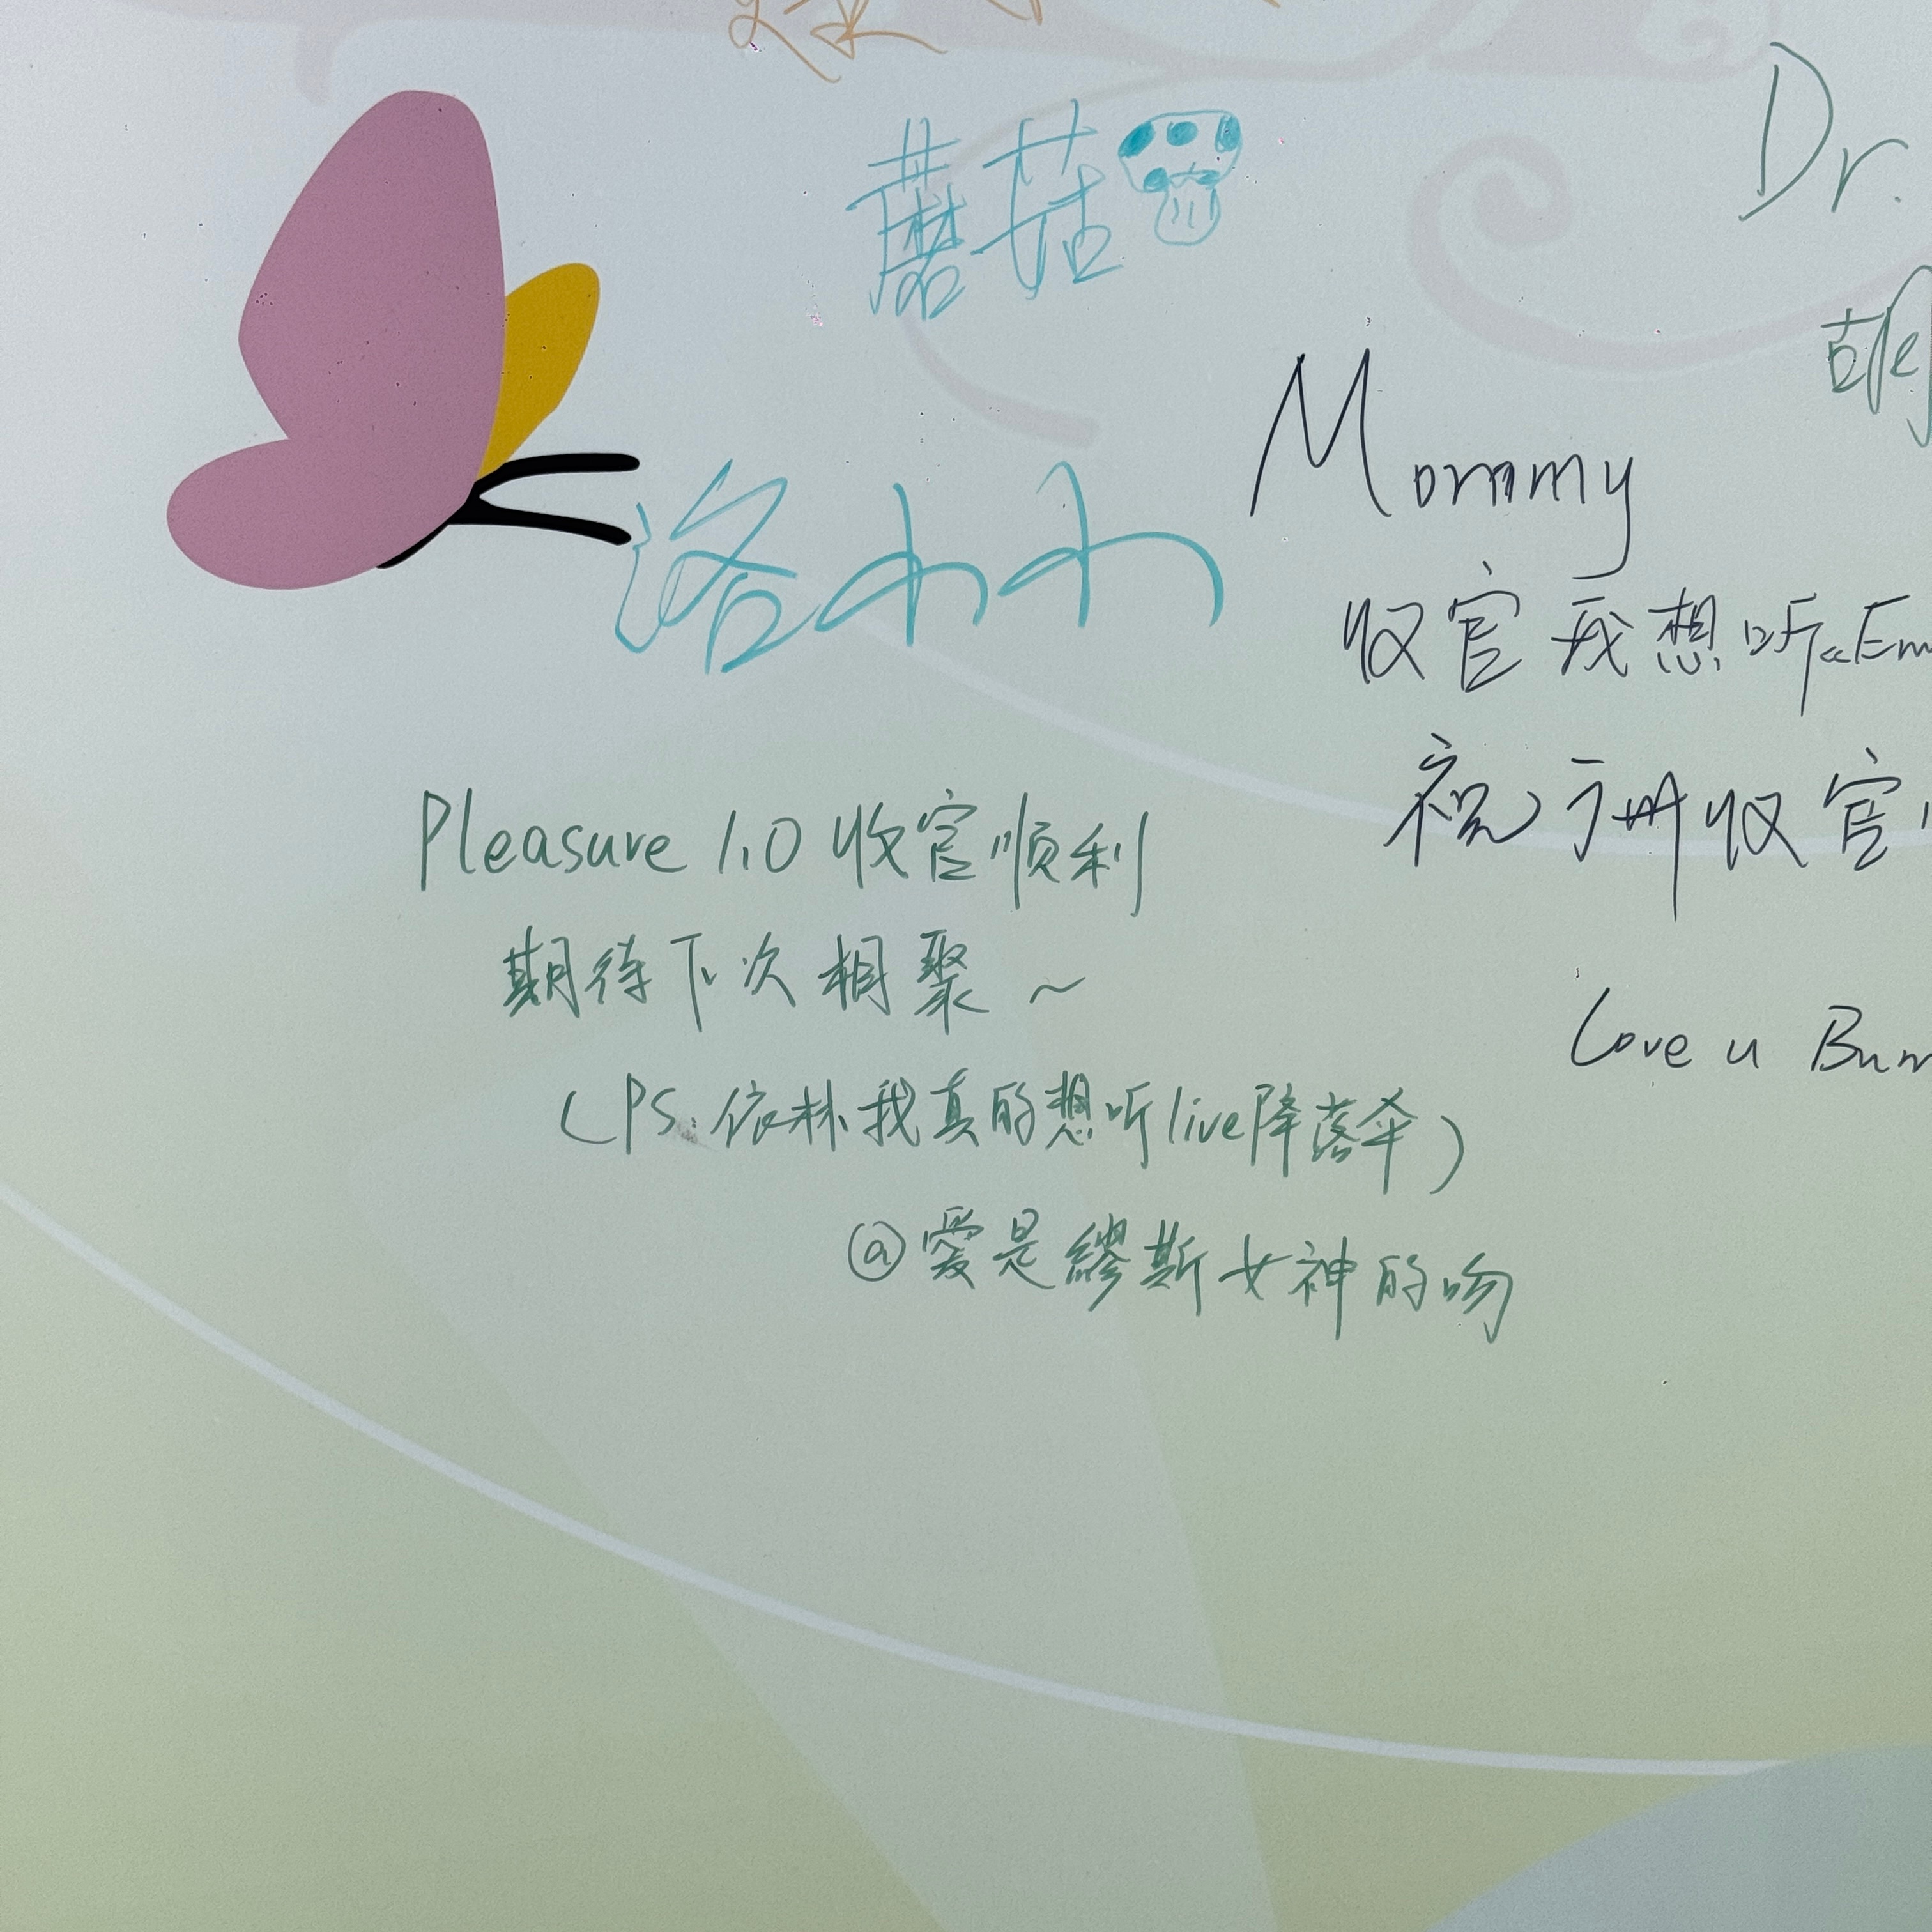 蘑菇
Dr.
Mommy
收官我想听《Em
祝 收官
Love u Bun
Pleasure 1.0 收官顺利
期待下次相聚~
(PS:依林我真的想听live降落伞)
@愛是繆斯女神的吻